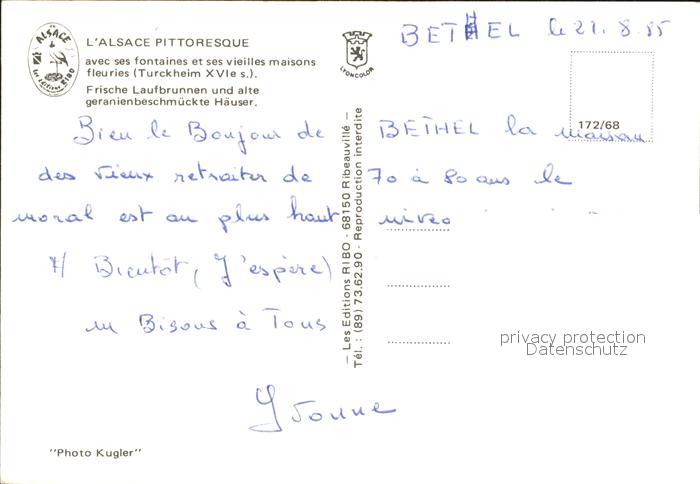 ALSACE
Les Editions RIBO
L'ALSACE PITTORESQUE
avec ses fontaines et ses vieilles maisons
fleuries (Turckheim XVIe s.).
Frische Laufbrunnen und alte
geranienbeschmückte Häuser.
LYONCOLOR
BETHEL le 21.8.85
172/68
Bien le Bonjour de BETHEL la maison
des vieux retraiter de 70 à 80 ans le
moral est au plus haut niveo
A/ Bientôt, (J'espère)
un Bisous à Tous
Yvonne
— Les Editions RIBO - 68150 Ribeauvillé —
Tél. : (89) 73.62.90 - Reproduction interdite
privacy protection
Datenschutz
"Photo Kugler"